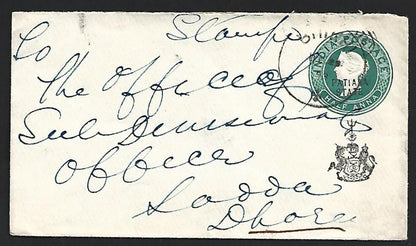 Stamps
INDIA POSTAGE
PATIALA
STATE
HALF ANNA
To
The Office of
Sub Divisional
Officer